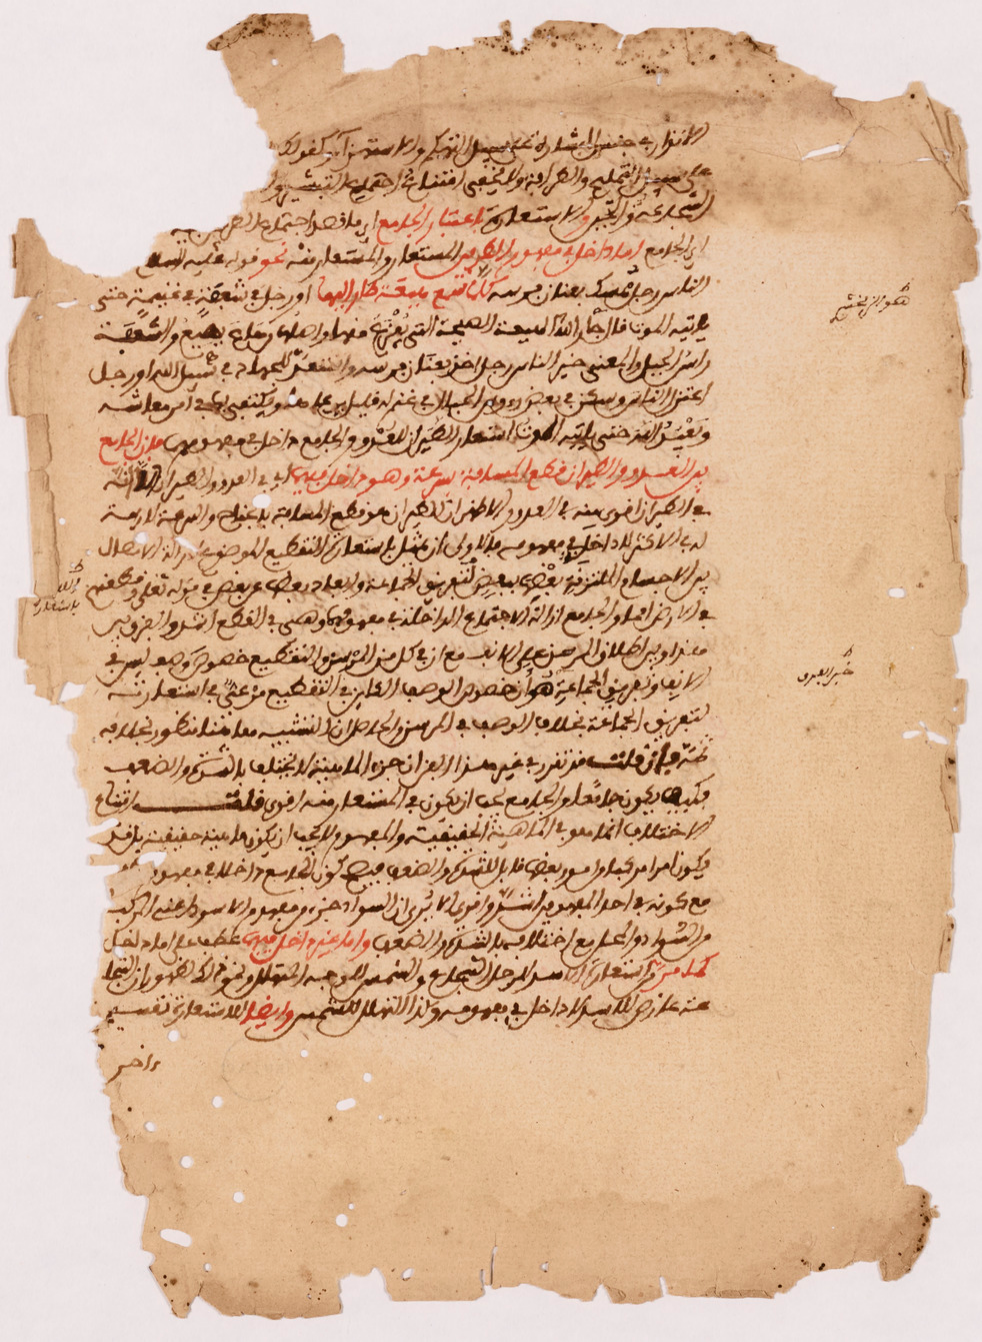 الانذار في جنس البشارة على سبيل التهكم والاستهزآ كقولك
على سبيل التمليح والظرافة ولا يخفى امتناع اجتماع التبشير وا
الشجاعة والجبن والاستعارة باعتبار الجامع اي ما قصد اجتماع الطرفين فيه
اي الجامع اما داخل في مفهوم الطرفين المستعار والمستعار منه نحو قوله عليه السلام
الناس رجل ممسك بعنان فرسه كلما سمع هيعة طار اليها او رجل في شعفة في غنيمة حتى
ياتيه الموت قال جار الله الهيعة الصيحة التي يفزع منها واصلها من هاع يهيع والشعفة
راس الجبل والمعنى خير الناس رجل اخذ بعنان فرسه واستعد للجهاد في سبيل الله او رجل
اعتزل الناس وسكن في بعض رءوس الجبال في غنم له قليل يرعاها ويكتفي بها في امر معاشه
ويعبد الله حتى ياتيه الموت استعار الطيران للعدو والجامع داخل في مفهومهما فان الجامع
بين العدو والطيران قطع المسافة بسرعة وهو داخل فيهما اي في العدو والطيران الا انه
في الطيران اقوى منه في العدو والاظهر ان الطيران هو قطع المسافة بالجناح والسرعة لازمة
له في الاكثر لا داخلة في مفهومه فالاولى ان يمثل باستعارة التقطيع الموضوع لازالة الاتصال
بين الاجسام الملتزقة بعضها ببعض لتفريق الجماعة وابعاد بعضها عن بعض في قوله تعلى وقطعنهم
في الارض امما والجامع ازالة الاجتماع الداخلة في مفهومهما وهي في القطع اشد والفرق بين
هذا وبين اطلاق المرسن على الانف مع ان في كل من المرسن والتقطيع خصوص وصف ليس في
الانف وتفريق الجماعة هو ان خصوص الوصف الكاين في التقطيع مرعي في استعارته
لتفريق الجماعة بخلاف الوصف في المرسن والحاصل ان التشبيه هاهنا منظور بخلافه
ثمة فان قلت قد تقرر في غير هذا الفن ان جزء الماهية لا يختلف بالشدة والضعف
فكيف يكون جامعا والجامع يجب ان يكون في المستعار منه اقوى قلت امتناع
الاختلاف انما هو في الماهية الحقيقية والمفهوم لا يجب ان يكون ماهية حقيقية بل قد
يكون امرا مركبا من امور بعضها قابل للشدة والضعف فيصح كون الجامع داخلا في مفهوم
مع كونه في احد المفهومين اشد واقوى الا ترى ان السواد جزء من مفهوم الاسود اعني المركب
من السواد والمحل مع اختلافه بالشدة والضعف واما غير داخل فيهما عطف على اما داخل
كما مر من استعارة الاسد للرجل الشجاع والشمس للوجه المتهلل ونحو ذلك لظهور ان الشجا
عة عارض للاسد لا داخل في مفهومه وكذا التهلل للشمس وايضا للاستعارة تقسيم
اخر
هو الزمخشري